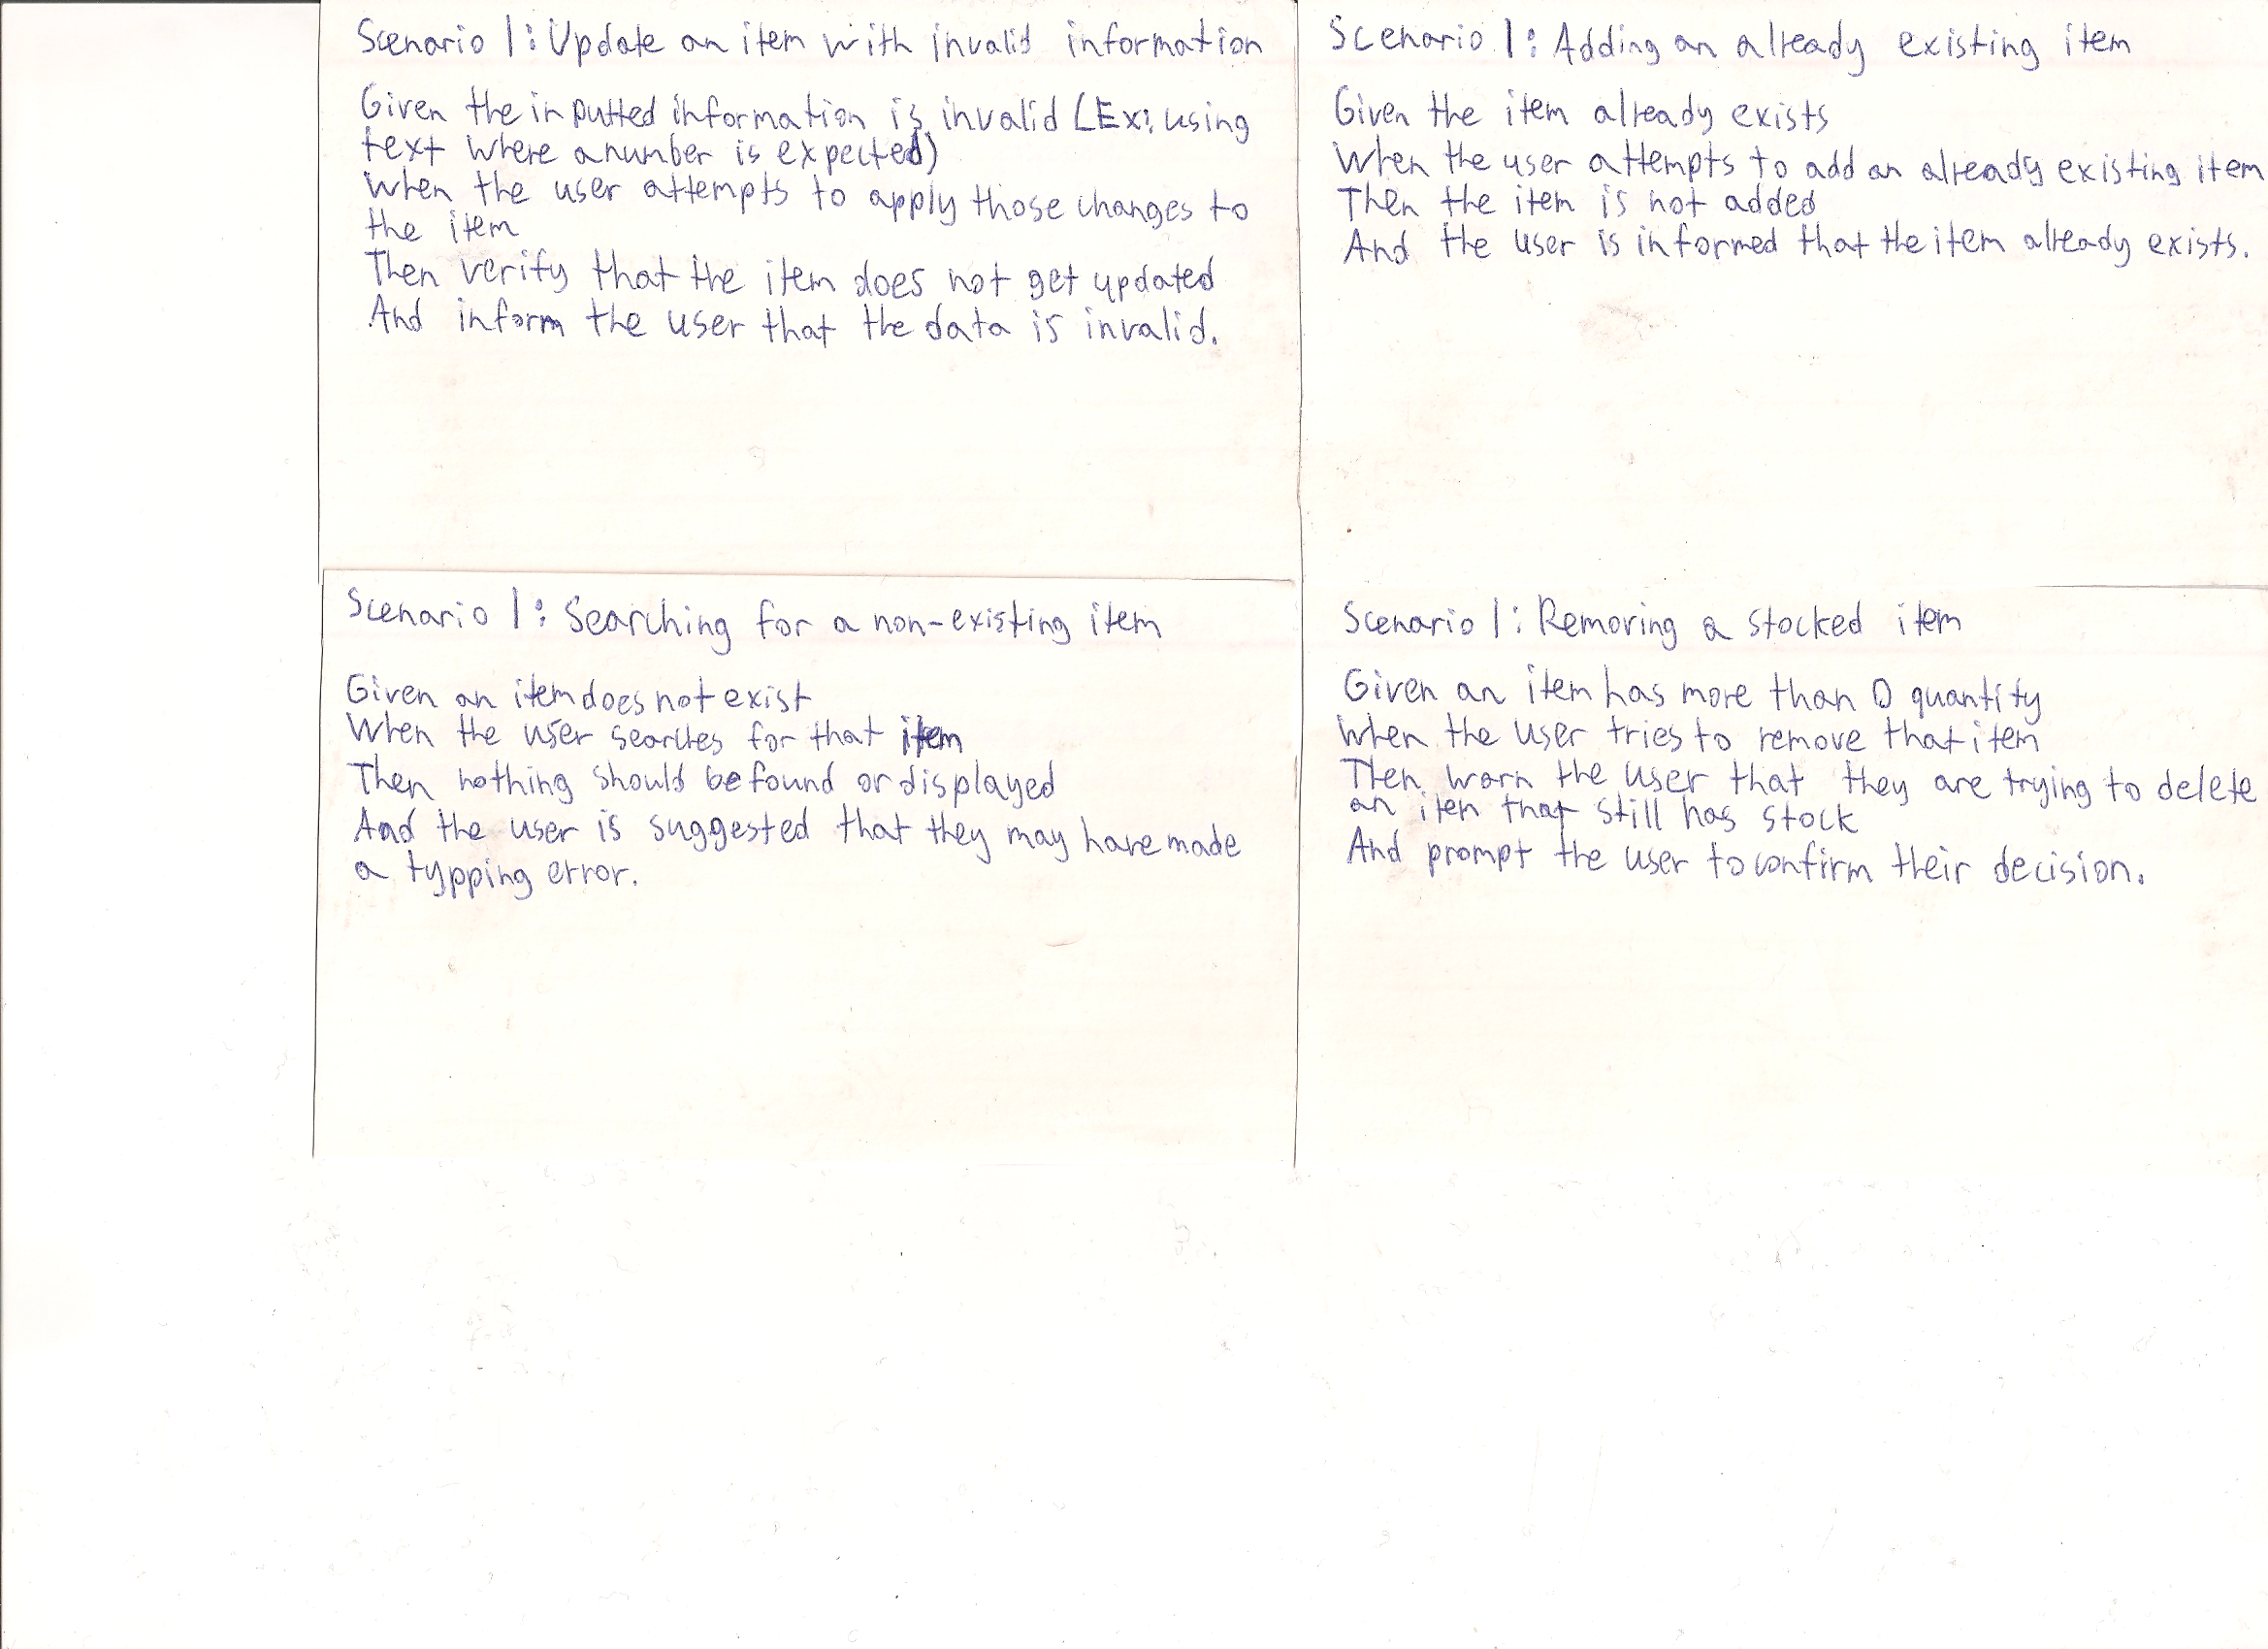 Scenario 1: Update an item with invalid information
Given the inputted information is invalid (Ex: using
text where a number is expected)
When the user attempts to apply those changes to
the item
Then verify that the item does not get updated
And inform the user that the data is invalid.
Scenario 1: Adding an already existing item
Given the item already exists
When the user attempts to add an already existing item
Then the item is not added
And the user is informed that the item already exists.
Scenario 1: Searching for a non-existing item
Given an item does not exist
When the user searches for that item
Then nothing should be found or displayed
And the user is suggested that they may have made
a typping error.
Scenario 1: Removing a stocked item
Given an item has more than 0 quantity
When the user tries to remove that item
Then warn the user that they are trying to delete
an item that still has stock
And prompt the user to confirm their decision.